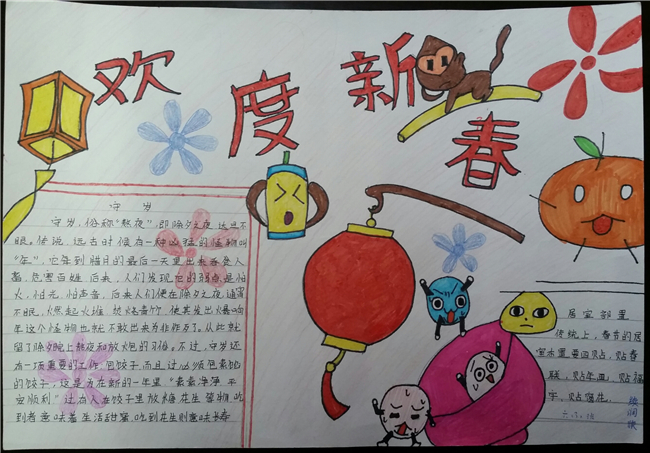 欢度新春
守 岁
守岁,俗称"熬夜",即除夕之夜
眠,传说,远古时候有一种凶猛的怪物叫
"年",它每到腊月的最后一天里出来吞食人
畜,危害百姓,后来,人们发现它的弱点是怕
火,怕光,怕声音,后来人们便在除夕之夜通宵
不眠,燃起火堆,焚烧青竹,使其发出爆响
年这个怪物也就不敢出来为非作歹了,从此就
留下除夕晚上熬夜和放火炮的习俗。不过,守岁还
有一项重要的工作,包饺子,而且过以须包素馅
的饺子,这是为在新的一年里"素素净净,平
安顺利"过去人在饺子里放糖花生等物,吃
到者意味着生活甜蜜,吃到花生则意味长寿
居室布置
传统上,春节的居
室布置要四贴,贴春
联,贴年画,贴福
字,贴窗花
六.